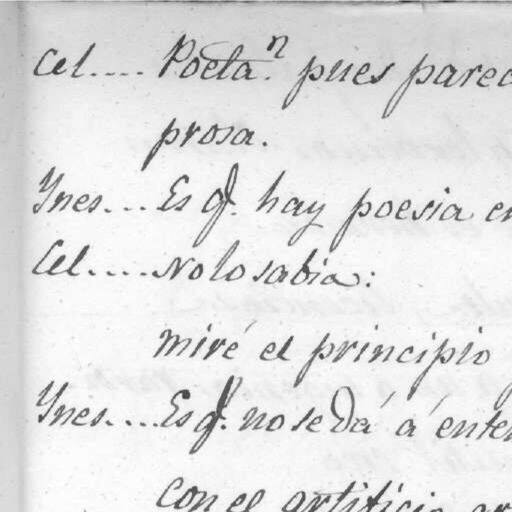 Cel.... Poeta.n pues parec
prosa.
Ynes... Es q. hay poesia en
Cel.... No lo sabia:
miré el principio
Ynes... Es q. no se dá á enten
con el artificio